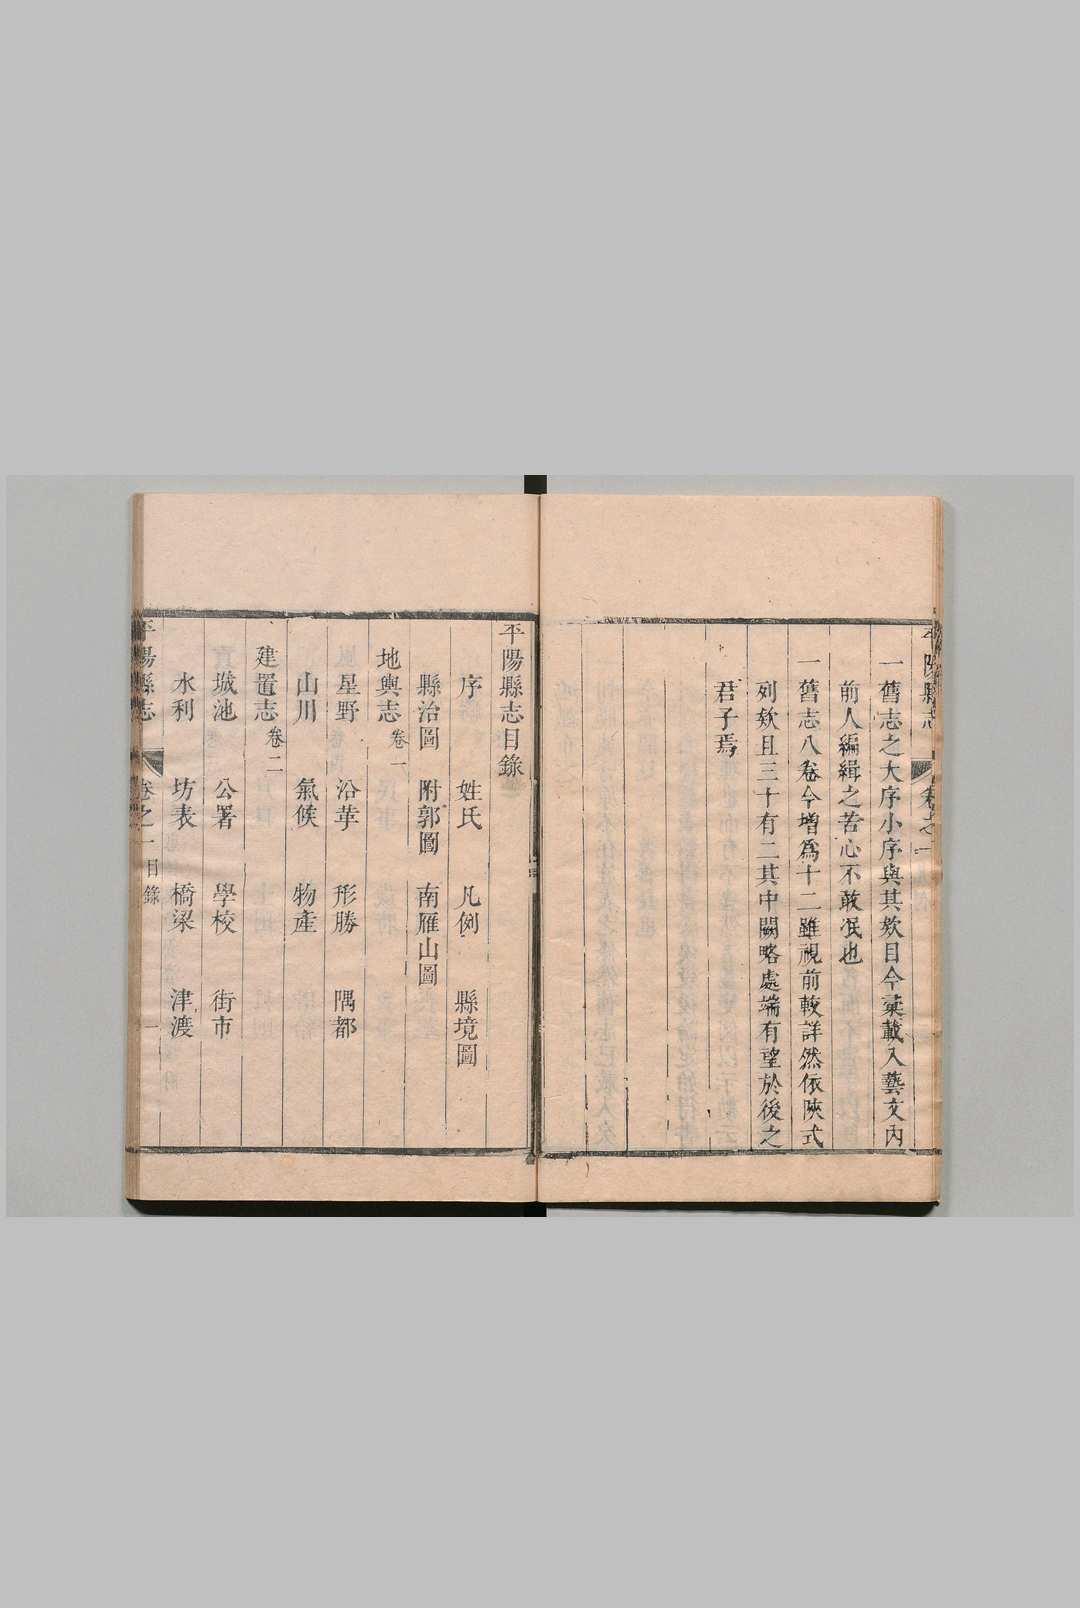 平陽縣志 卷之一
一舊志之大序小序與其欸目今彙載入藝文內
前人編緝之苦心不敢泯也
一舊志八卷今增爲十二雖視前較詳然依陝式
列欸且三十有二其中闕略處端有望於後之
君子焉
平陽縣志目錄
序 姓氏 凡例 縣境圖
縣治圖 附郭圖 南雁山圖
地輿志 卷一
星野 沿革 形勝 隅都
山川 氣候 物產
建置志 卷二
城池 公署 學校 街市
水利 坊表 橋梁 津渡
平陽縣志 卷之一 目錄 一